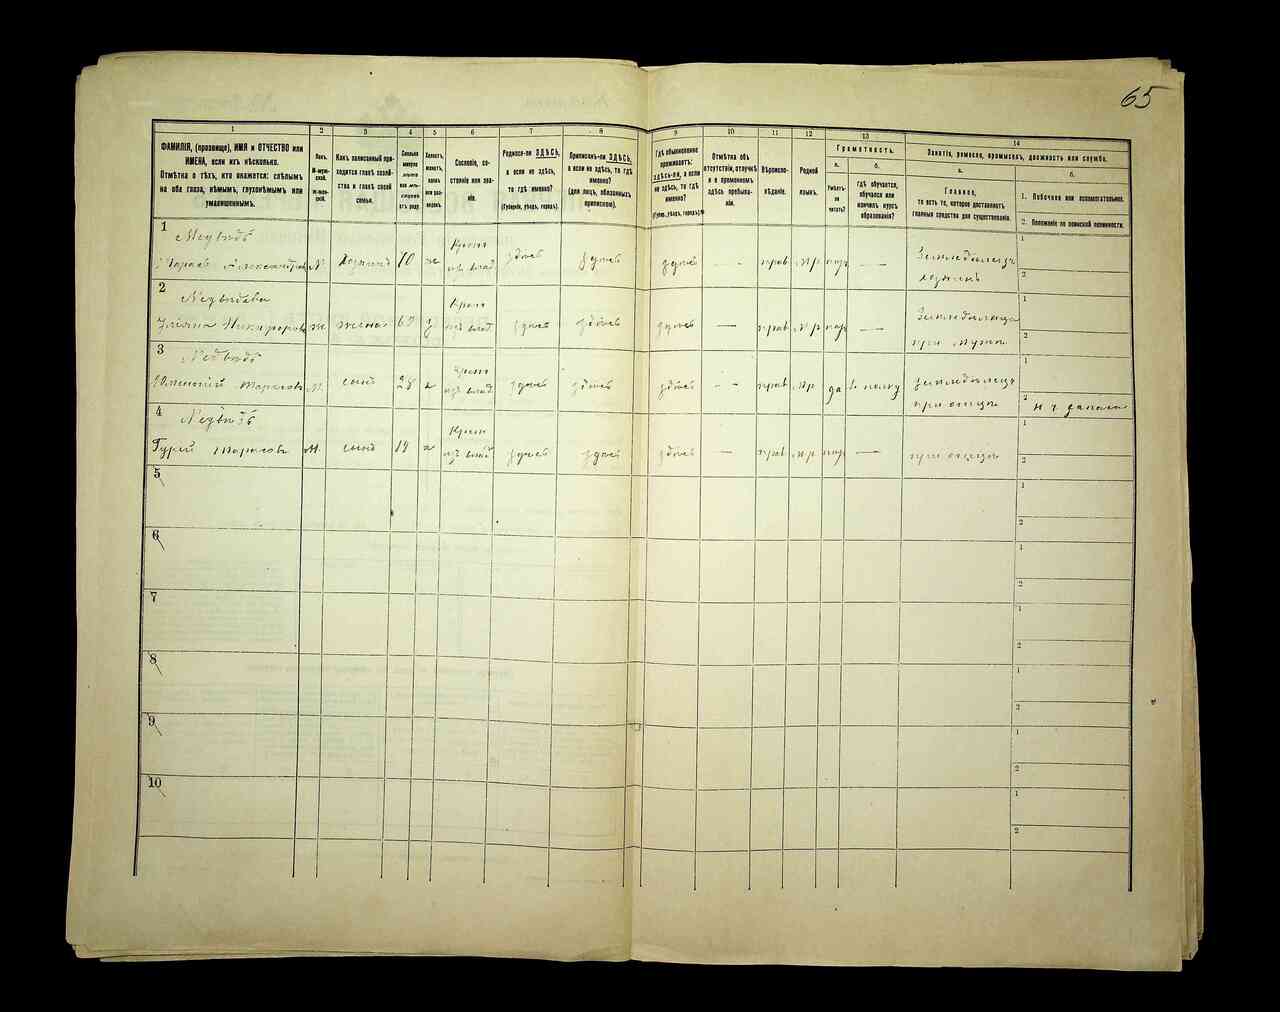 65
1
2
3
4
5
6
7
8
9
10
11
12
13
14
ФАМИЛІЯ, (прозвище), ИМЯ и ОТЧЕСТВО или
ИМЕНА, если ихъ нѣсколько.
Отмѣтка о тѣхъ, кто окажется: слѣпымъ
на оба глаза, нѣмымъ, глухонѣмымъ или
умалишеннымъ.
Полъ.
М-муж-
ской.
Ж-жен-
ской.
Какъ записанный при-
ходится главѣ хозяй-
ства и главѣ своей
семьи.
Сколько
минуло
лѣтъ
Холостъ,
женатъ,
вдовъ
или раз-
веденъ.
Сословіе, со-
стояніе или зва-
ніе.
Родился-ли ЗДѢСЬ,
а если не здѣсь,
то гдѣ именно?
(Губернія, уѣздъ, городъ).
Приписанъ-ли ЗДѢСЬ,
а если не здѣсь, то гдѣ
именно?
(для лицъ, обязанныхъ
припискою).
Гдѣ обыкновенно
проживаетъ:
ЗДѢСЬ-ли, а если
не здѣсь, то гдѣ
именно?
(Губер., уѣздъ, городъ).
Отмѣтка объ
отсутствіи, отлучкѣ
и о временномъ
здѣсь пребыва-
ніи.
Вѣроиспо-
вѣданіе.
Родной
языкъ.
Грамотность.
а.
Умѣетъ-
ли
читать?
б.
гдѣ обучается,
обучался или
кончилъ курсъ
образованія?
Занятіе, ремесло, промыселъ, должность или служба.
а.
Главное,
то есть то, которое доставляетъ
главныя средства для существованія.
б.
1. Побочное или вспомогательное.
2. Положеніе по воинской повинности.
1
Медвѣдь
Тарасъ Александровъ М. Хозяинъ 70 ж Крест. изъ влад. здѣсь здѣсь здѣсь — прав. мр. — Земледѣлецъ хозяинъ
1
2
2
Медвѣдева
Никифорова ж жена 69 з Крест. изъ влад. здѣсь здѣсь здѣсь — прав. мр. — при мужѣ
1
2
3
Медвѣдь
Тарасовъ М. сынъ 28 х Крест. изъ влад. здѣсь здѣсь здѣсь — прав. мр. да въ полку Земледѣлецъ при отцѣ
1
2
4
Медвѣдь
Гурій Тарасовъ М. сынъ х Крест. изъ влад. здѣсь здѣсь здѣсь — прав. мр. — при отцѣ
1
2
5
1
2
6
1
2
7
1
2
8
1
2
9
1
2
10
1
2